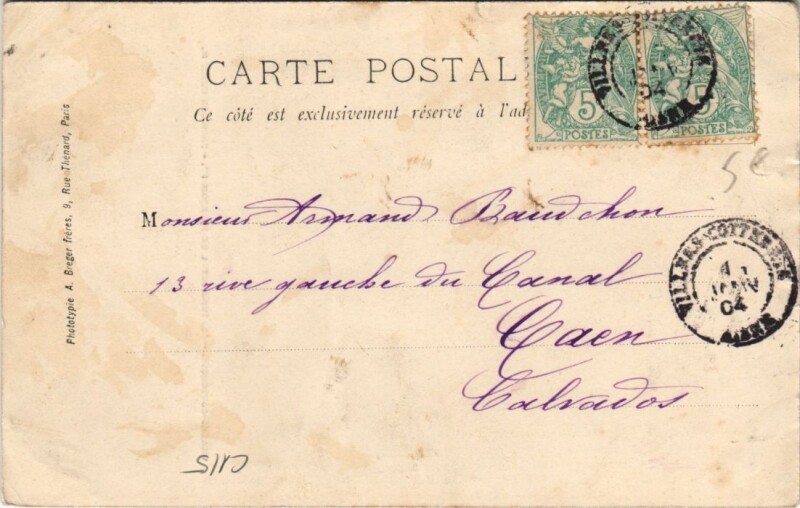 CARTE POSTAL
Ce côté est exclusivement réservé à l'ad
5 5
POSTES POSTES
VILLERS-COTTERETS
04
AISNE
5€
Monsieur Armand Bauchon
13 rive gauche du Canal
Caen
Calvados
VILLERS-COTTERETS
JANV
04
AISNE
Phototypie A. Breger frères, 9, Rue Thénard, Paris